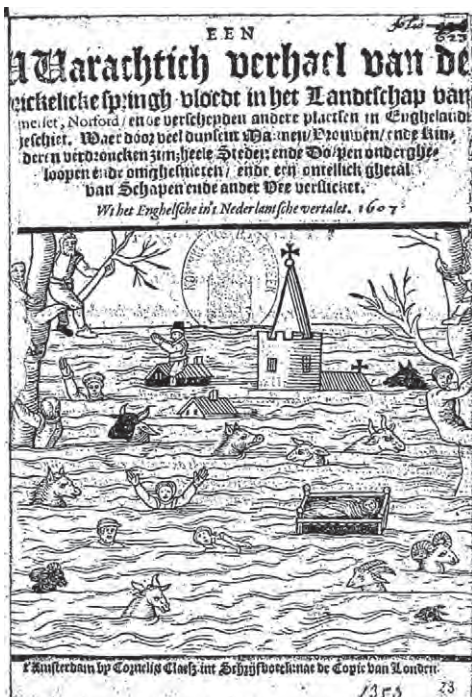 EEN
Warachtich verhael van de
springh vloedt in het Landtschap van
Norford / ende verscheyden andere plaetsen in Enghelandt
Waer door veel duysent Mannen / Vrouwen / ende Kin-
deren verdroncken zijn; heele Steden ende Dorpen onderghe-
loopen ende ende een ontellick ghetal
van Schapen ende ander Vee
Wt het Enghelsche in't Nederlantsche vertalet. 1607.
t'Amsterdam by Cornelis Claesz. int Schrijfboeck nae de Copie van Londen.
23